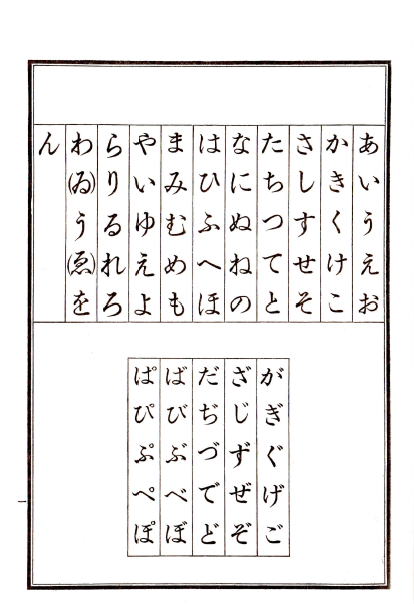 あいうえお
かきくけこ
さしすせそ
たちつてと
なにぬねの
はひふへほ
まみむめも
やいゆえよ
らりるれろ
わ(ゐ)う(ゑ)を
ん
がぎぐげご
ざじずぜぞ
だぢづでど
ばびぶべぼ
ぱぴぷぺぽ
一